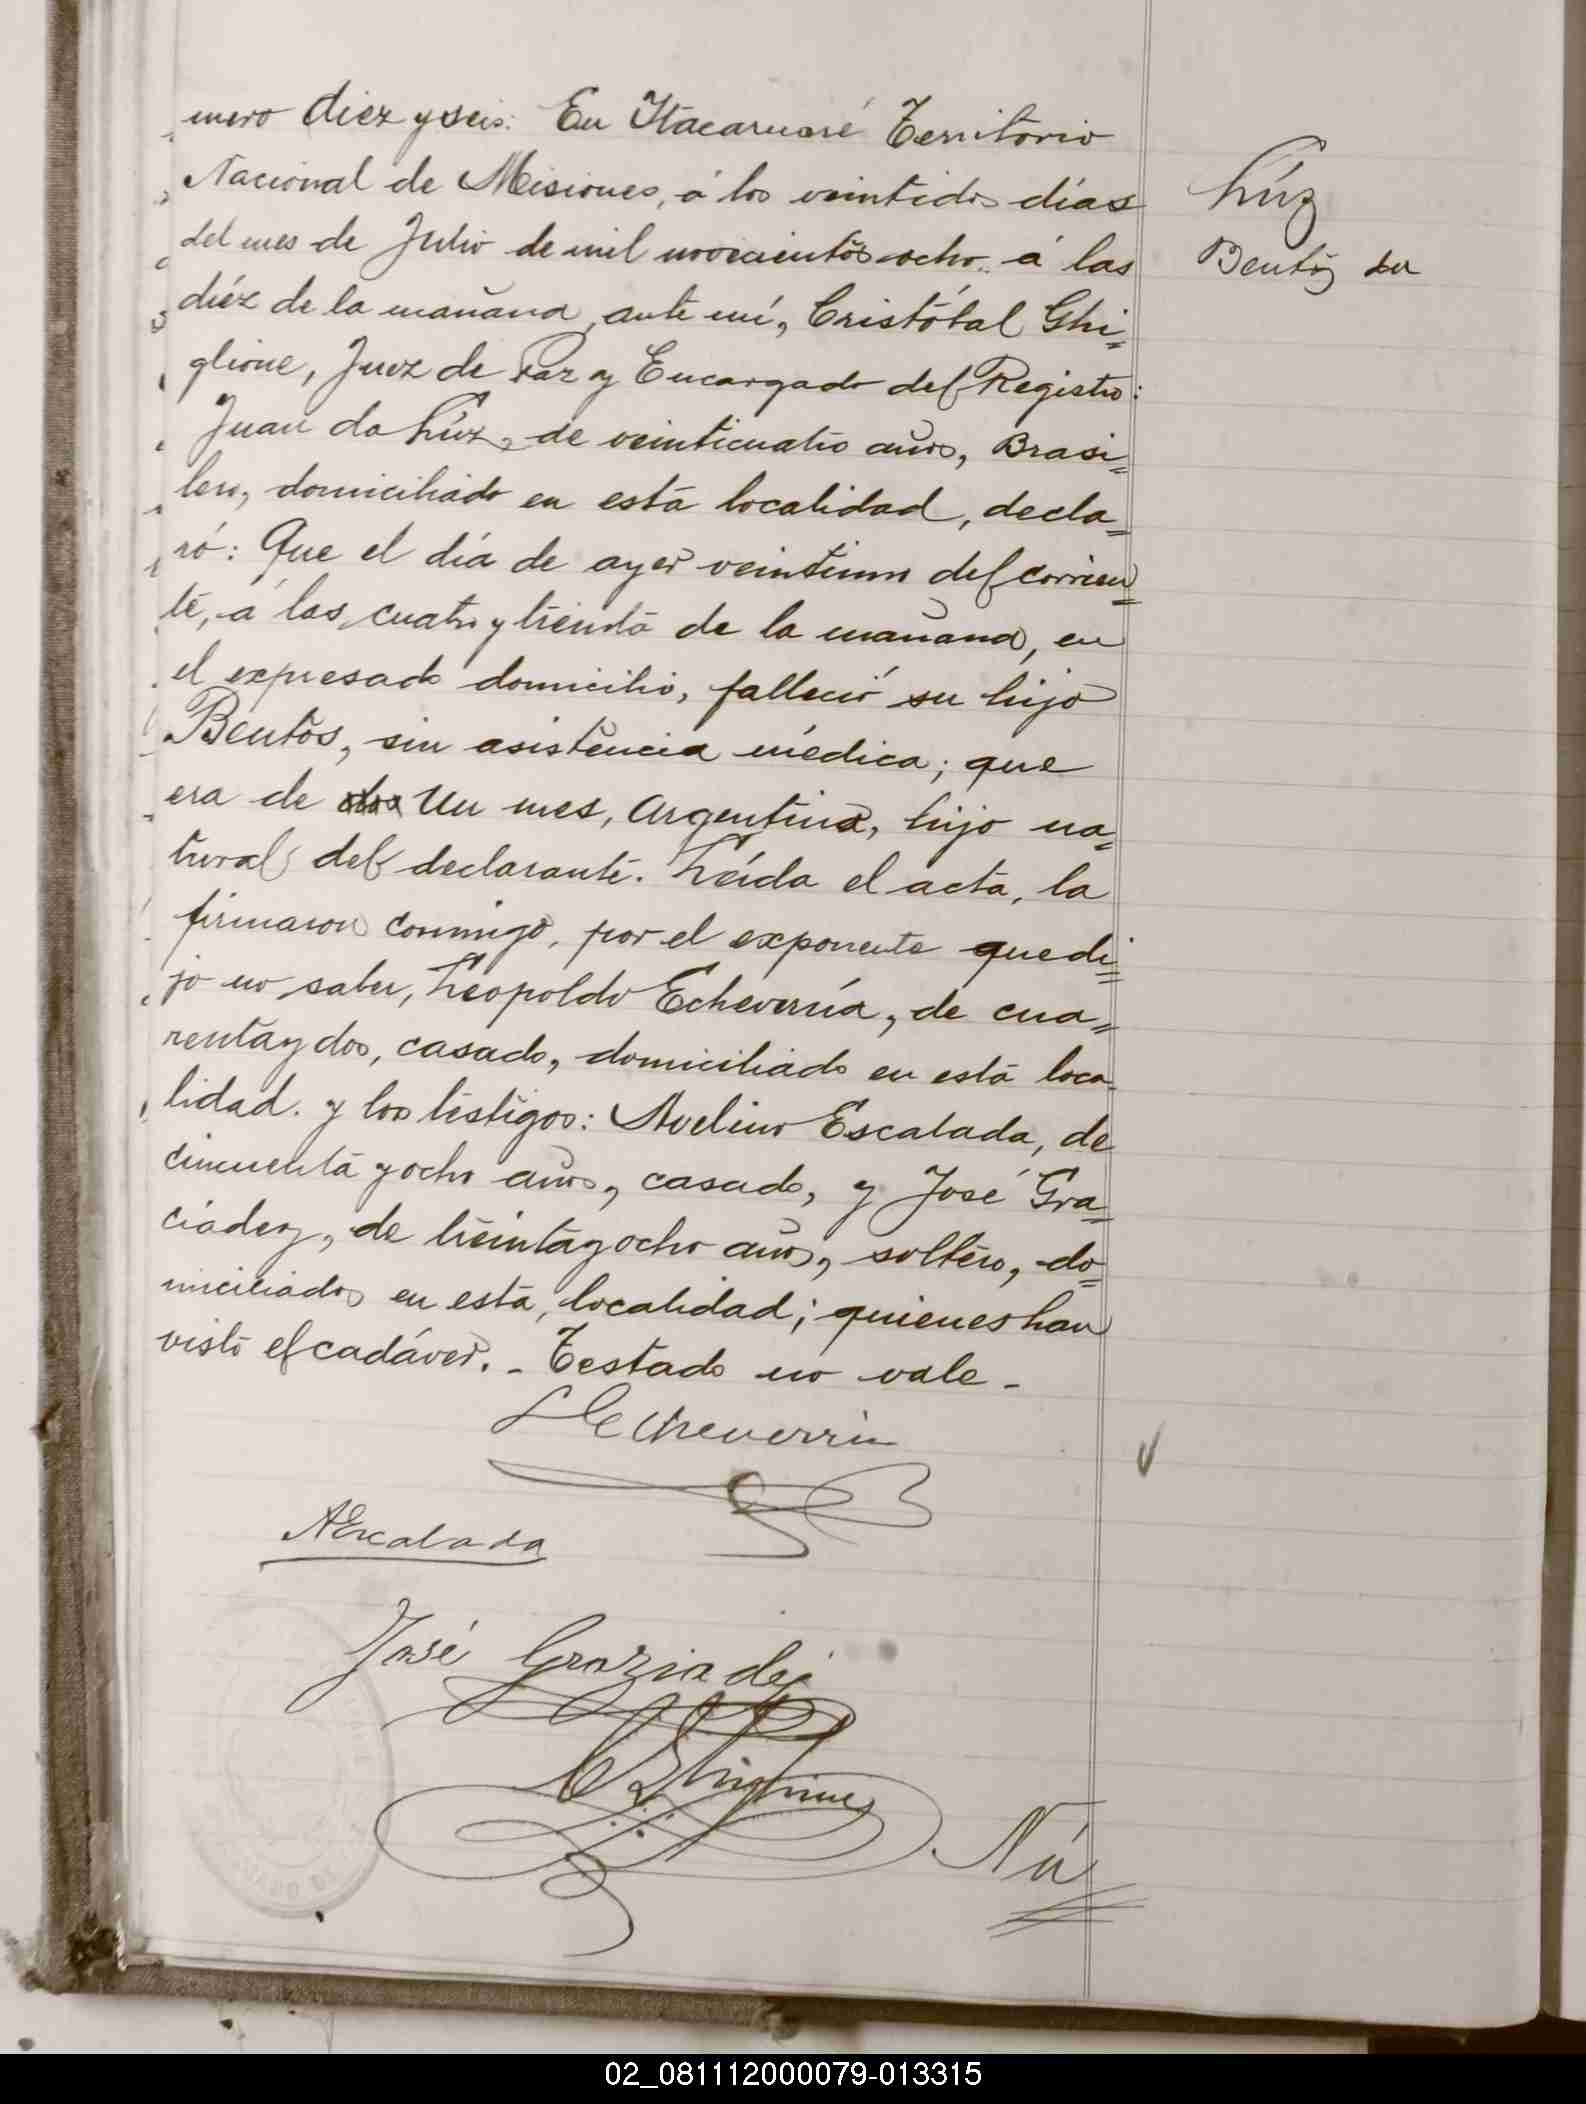 mero diez y seis: En Itacaruaré Territorio
Nacional de Misiones, á los veintidos días
del mes de Julio de mil novecientos ocho á las
diéz de la mañana, ante mí, Cristóbal Ghi=
glione, Juez de Paz y Encargado del Registro:
Juan da Lúz, de veinticuatro años, Brasi=
lero, domiciliado en está localidad, decla=
ró: Que el día de ayer veintiuno del corrien=
te, á las cuatro y treinta de la mañana, en
el expresado domicilio, falleció su hijo
Bentos, sin asistencia médica; que
era de dos Un mes, Argentino, hijo na=
tural del declarante. Leída el acta, la
firmaron conmigo, por el exponente que di=
jo no saber, Leopoldo Echeverría, de cua=
renta y dos, casado, domiciliado en está loca
lidad. y los testigos: Avelino Escalada, de
cincuenta y ocho años, casado, y José Gra=
ciadey, de treinta y ocho años, soltero, do=
miciliados en esta, localidad; quienes han
visto el cadáver. - Testado no vale -
Lúz
Bentos da
LEcheverria
AEscalada
José Graziadei
C Ghiglione
Nú
02_081112000079-013315